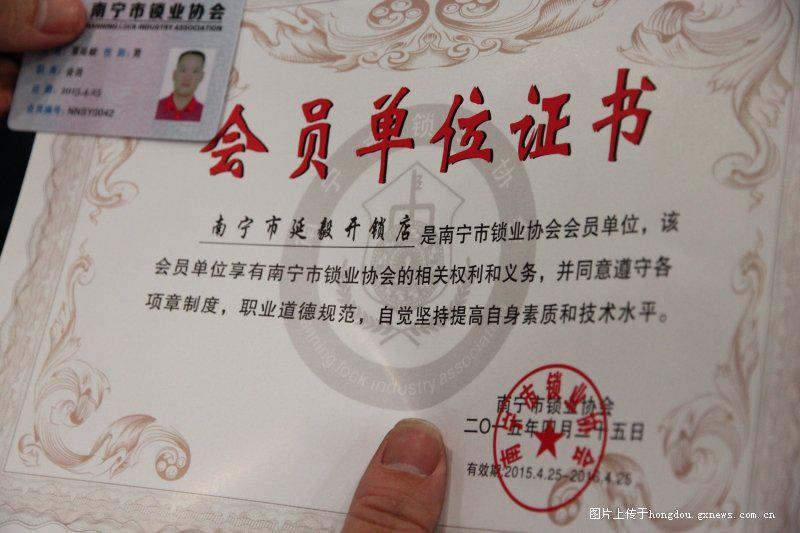 南宁市锁业协会
NANNING LOCK INDUSTRY ASSOCIATION
性别:男
职务:会员
日期:2015.4.25
会员编号:NNSY0042
会员单位证书
南宁市延毅开锁店是南宁市锁业协会会员单位,该
会员单位享有南宁市锁业协会的相关权利和义务,并同意遵守各
项章制度,职业道德规范,自觉坚持提高自身素质和技术水平。
nanning lock industry association
南宁市锁业协会
二〇一五年四月二十五日
有效期:2015.4.25-2016.4.25
南宁市锁业协会
图片上传于hongdou.gxnews.com.cn